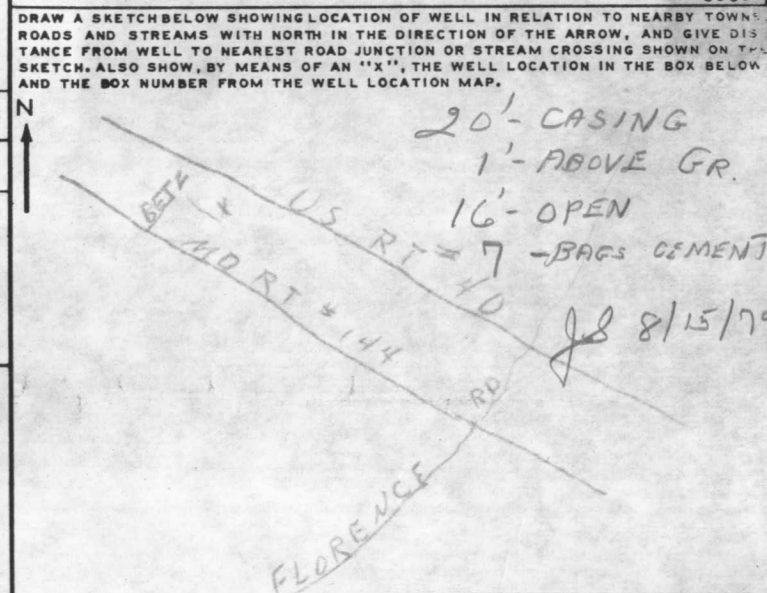 DRAW A SKETCH BELOW SHOWING LOCATION OF WELL IN RELATION TO NEARBY TOWNS
ROADS AND STREAMS WITH NORTH IN THE DIRECTION OF THE ARROW, AND GIVE DIS
TANCE FROM WELL TO NEAREST ROAD JUNCTION OR STREAM CROSSING SHOWN ON THE
SKETCH. ALSO SHOW, BY MEANS OF AN "X", THE WELL LOCATION IN THE BOX BELOW
AND THE BOX NUMBER FROM THE WELL LOCATION MAP.
N
20'- CASING
1'- ABOVE GR.
16'- OPEN
7 -BAGS CEMENT
JS 8/15/79
X
US RT # 40
MD RT # 144
FLORENCE RD